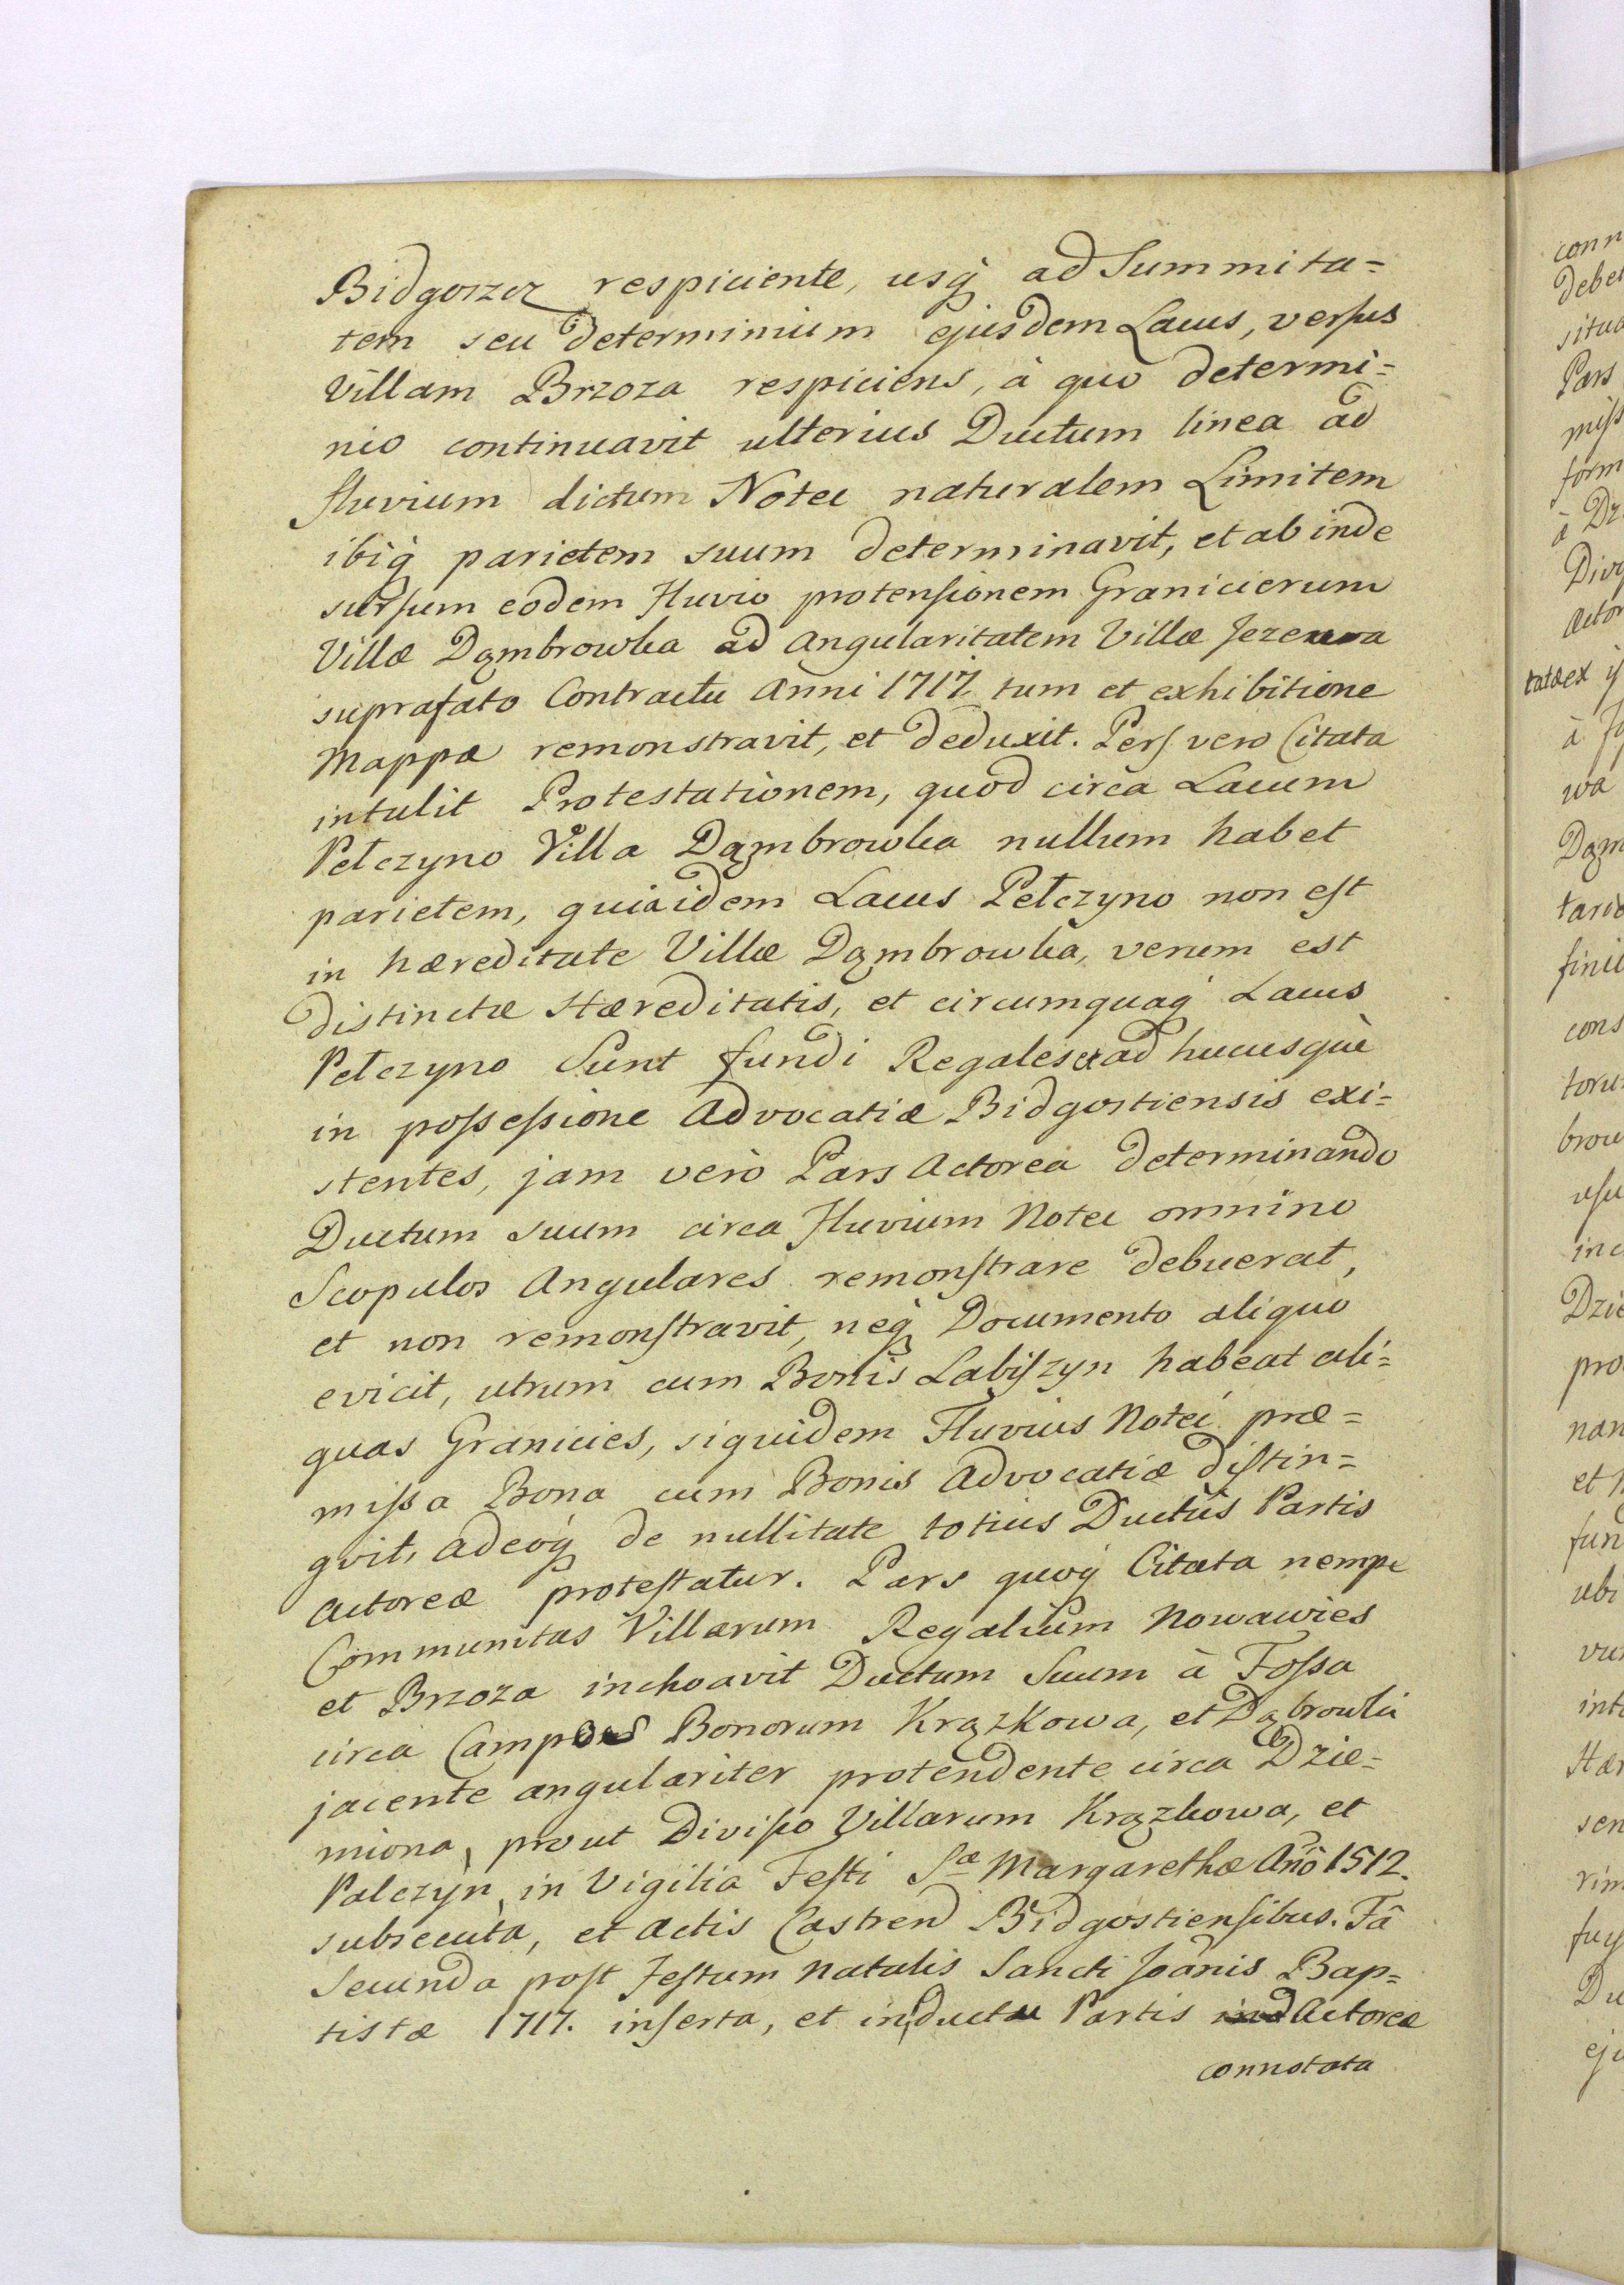 Bidgoszcz respiciente, usq̃ ad Summita=
tem seu determinium ejusdem Lacus, verſus
Villam Brzoza respiciens, à quo determi=
nio continuavit ulterius Ductum linea ad
fluvium dictum Noteć naturalem Limitem
ibiq̃ parietem suum determinavit, et ab inde
surſum eodem Fluvio protenſionem Granicierum
Villæ Dąmbrowka ad Angularitatem Villæ
suprafato Contractu Anni 1717 tum et exhibitione
Mappæ remonstravit, et deduxit. Pars vero Citata
intulit Protestationem, quod circa Lacum
Pełczyno Villa Dąmbrowka nullum habet
parietem, quia idem Lacus Pełczyno non eſt
in hæreditate Villæ Dąmbrowka, verum est
distinctæ Hæreditatis, et circumquaq̃ Lacus
Pełczyno Sunt fundi Regales et ad hucusquè
in poſseſsione Advocatiæ Bidgostiensis exi=
stentes, jam verò Pars Actorea determinando
Ductum suum circa Fluvium Noteć omnino
Scopulos Angulares remonſtrare debuerat,
et non remonſtravit, neq̃ Documento aliquo
evicit, utrum cum Bonis Labiſzyn habeat ali=
quas Granicies, siquidem Fluvius Noteć præ=
miſsa Bona cum Bonis Advocatiæ diſtin=
gvit, adeoq̃ de nullitate totius Ductûs Partis
Actoreæ proteſtatur. Pars quoq̃ Citata nempe
Communitas Villarum Regalium Nowawies
et Brzoza inchoavit Ductum Suum à Foſsa
circa Campos Bonorum Krązkowa, et Dąbrowka
jacente angulariter protendente circa Dzie=
miona, prout Diviſio Villarum Krązkowa, et
Palczyn, in Vigilia Feſti Sæ Margarethæ Año 1512.
subsecuta, et Actis Castren Bidgostienſibus. Fâ
Secunda poſt Feſtum Natalis Sancti Joãnis Bap=
tistæ 1717. inſerta, et in ductu Partis Actoreæ
connotata
conn
debet
situa
Pars
miſs
form
à Dz
Div
Actor
tatæ ex
à
wa
Dąm
tari
finil
cons
toru
brow
uſu
in
Dzie
pro
nan
et
fun
ubi
vu
int
Hær
sen
rim
fu
Du
ej